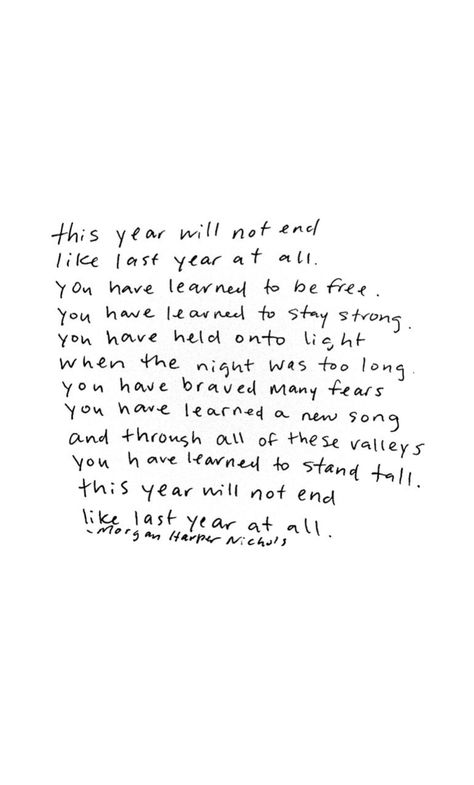 this year will not end
like last year at all.
you have learned to be free.
you have learned to stay strong.
you have held onto light
when the night was too long.
you have braved many fears
you have learned a new song
and through all of these valleys
you have learned to stand tall.
this year will not end
like last year at all.
- Morgan Harper Nichols